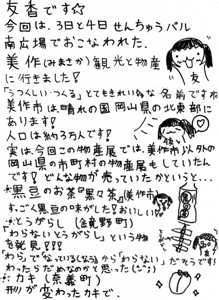 友香です☆
今回は、3日と4日せんちゅうパル
南広場でおこなわれた、
美作(みまさか)観光と物産
に行きました!
「うつくしい・つくる」とてもきれいな名前ですネ
美作市は、晴れの国岡山県の北東部に
あります!
人口は約3万人です!
実は、今回この物産展では、美作市以外の
岡山県の市町村の物産展もしていたん
です!どんな物が売っていたかというと…
*黒豆のお茶『黒々茶』(美作市)
すっごく黒豆の味がした!おいしい!
*とうがらし(倉敷野町)
「わらないとうがらし」という物
を発見!!!
「わら」で「なっている(なう)」から「わらない」だそうです!
わったらだめなのかと思った(^^;)
*カキ(奈義町)
形が変わったカキで、